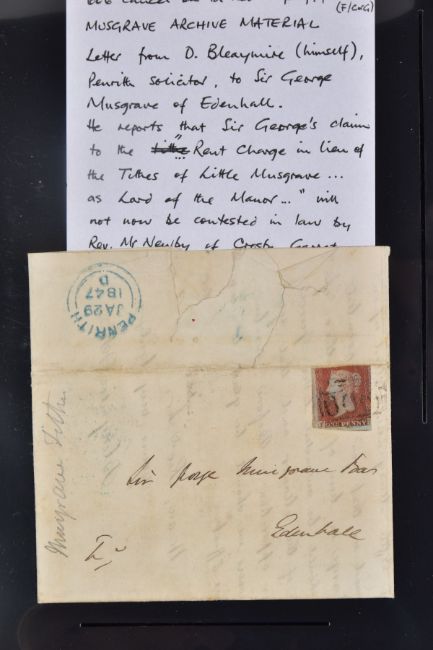 (F/CWG)
MUSGRAVE ARCHIVE MATERIAL
Letter from D. Bleaymire (himself),
Penrith solicitor, to Sir George
Musgrave of Edenhall.
He reports that Sir George's claim
to the "Rent Charge in lieu of
the Tithes of Little Musgrave...
as Lord of the Manor..." will
not now be contested in law by
Rev. Mr Newby of Crosby Garret
PENRITH
JA29
1847
D
Musgrave Tithe
Sir George Musgrave Bar
Edenhall